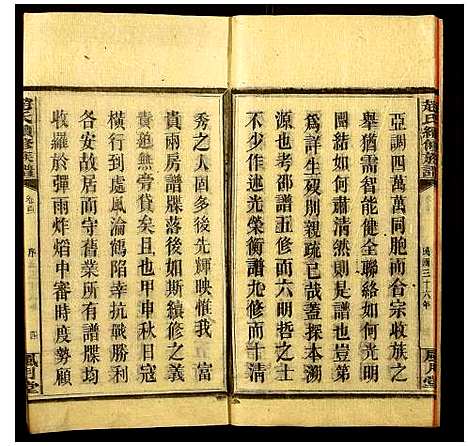 趙氏續修族譜
民國三十六年
風月堂
亞謂四萬萬同胞而台宗收族之
舉猶需智能健全聯絡如何光明
團結如何肅清然則是譜也豈第
為詳生砭附別親疏已哉蓋探本溯
源考邵譜五修而六明哲之士
不少作述光榮衡譜九修而十清
秀之人固多後先輝映惟我 富
貴兩房譜牒落後如斯續修之義
責迨無旁貸矣且也甲申秋日寇
橫行到處風淪鶴陷幸抗破勝利
各安故居而守舊業所有譜牒均
收羅於彈雨炸熖中審時度勢顧
趙氏續修族譜
卷首
序
風月堂